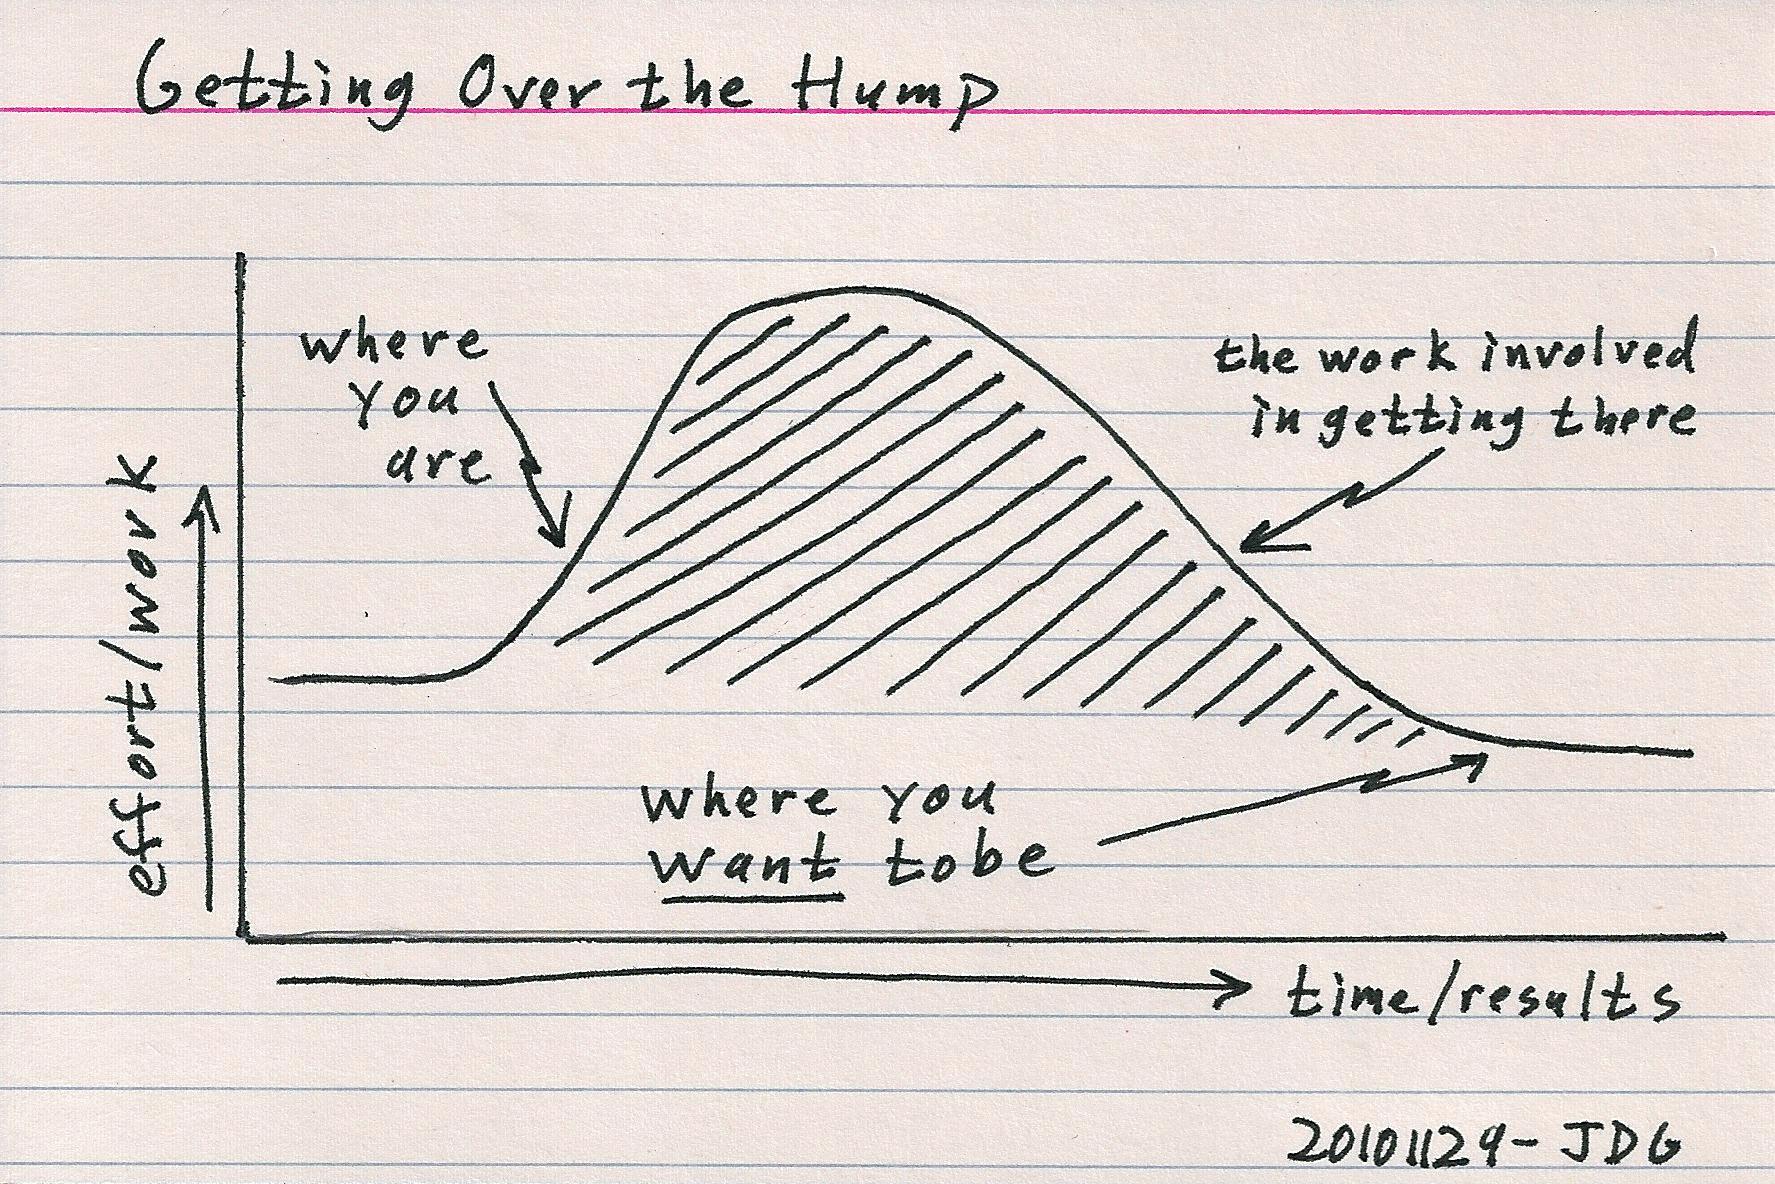 Getting Over the Hump
where
you
are
the work involved
in getting there
effort/work
where you
want tobe
time/results
20101129-JDG